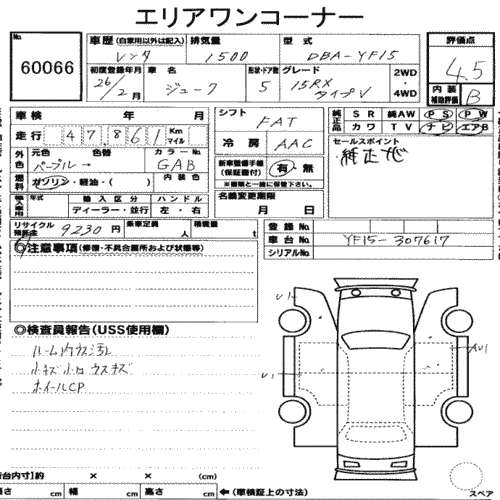 エリアワンコーナー
No. 60066
車歴 (自家用以外は記入) レンタ
排気量 1500
型式 DBA-YF15
評価点 4.5
初度登録年月 26年/2月
車名 ジューク
形状・ドア数 5
グレード 15RX タイプV
2WD・4WD
内装補助評価 B
車検 年 月
シフト FAT
純正品 SR 純AW PS PW
カワ TV ナビ エアB
走行 47,861 Km マイル
冷房 AAC
セールスポイント
外色 元色 色替 カラーNo.
パープル→ GAB
新車整備手帳(保証書付) 有・無
※書類と一緒に保管下さい。
燃料 ガソリン・軽油・( ) 内装色
輸入車用 年式 輸入区分 ハンドル
ディーラー・並行 左・右
名義変更期限
月 日
リサイクル預託金 9230円 乗車定員 人 積載量 t
登録No.
車台No. YF15-307617
シリアルNo.
◎注意事項(修復・不具合箇所および状態等)
◎検査員報告(USS使用欄)
ルーム内ウス汚レ
小キズ小凹ウスキズ
ホイールCP
U1
AU1
U1
荷台内寸)約 × × (cm)
長さ cm 幅 cm 高さ cm
←(車検証上の寸法)
スペア